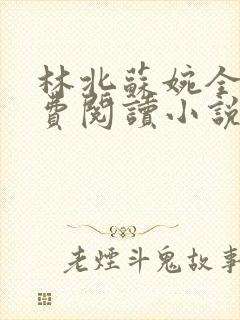 林北蘇婉全
費閱讀小說
老煙斗鬼故事